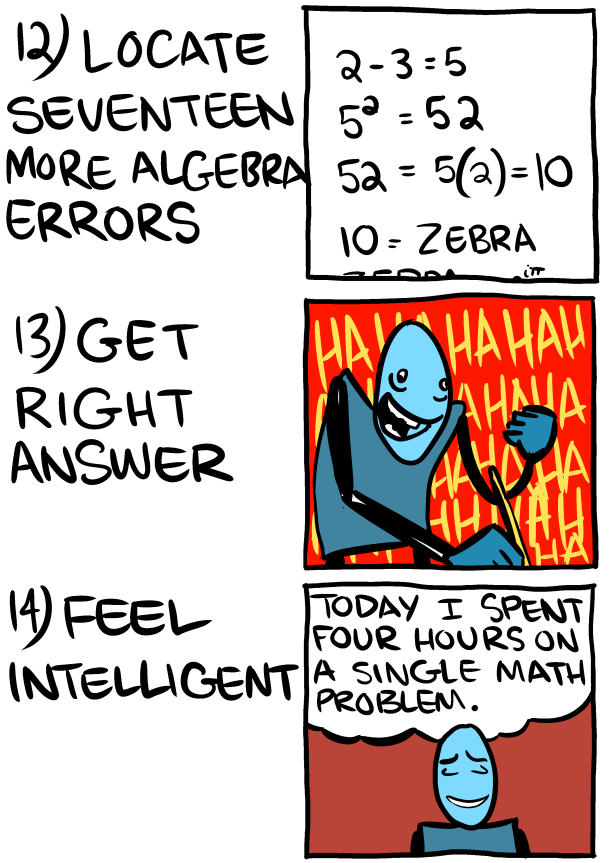 12) LOCATE
SEVENTEEN
MORE ALGEBRA
ERRORS
2-3=5
5² = 52
52 = 5(2)=10
10 = ZEBRA
13) GET
RIGHT
ANSWER
HA HA HA HAH
14) FEEL
INTELLIGENT
TODAY I SPENT
FOUR HOURS ON
A SINGLE MATH
PROBLEM.